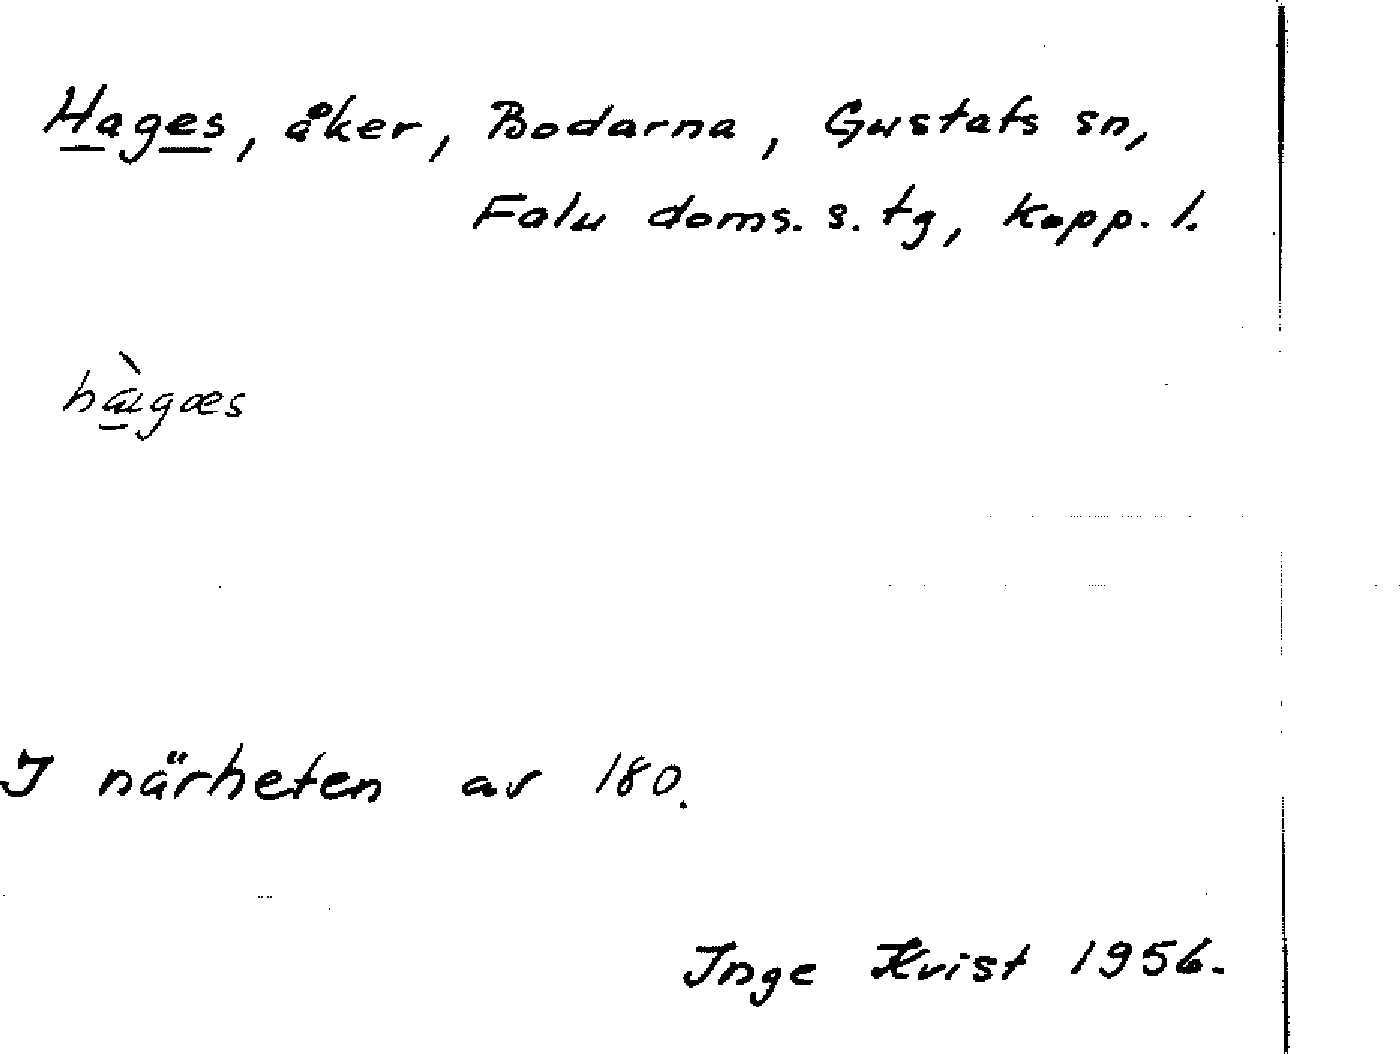 Hages, åker, Bodarna, Gustafs sn,
Falu doms. s. tg, Kopp. l.
hàgæs
I närheten av 180.
Inge Kvist 1956.